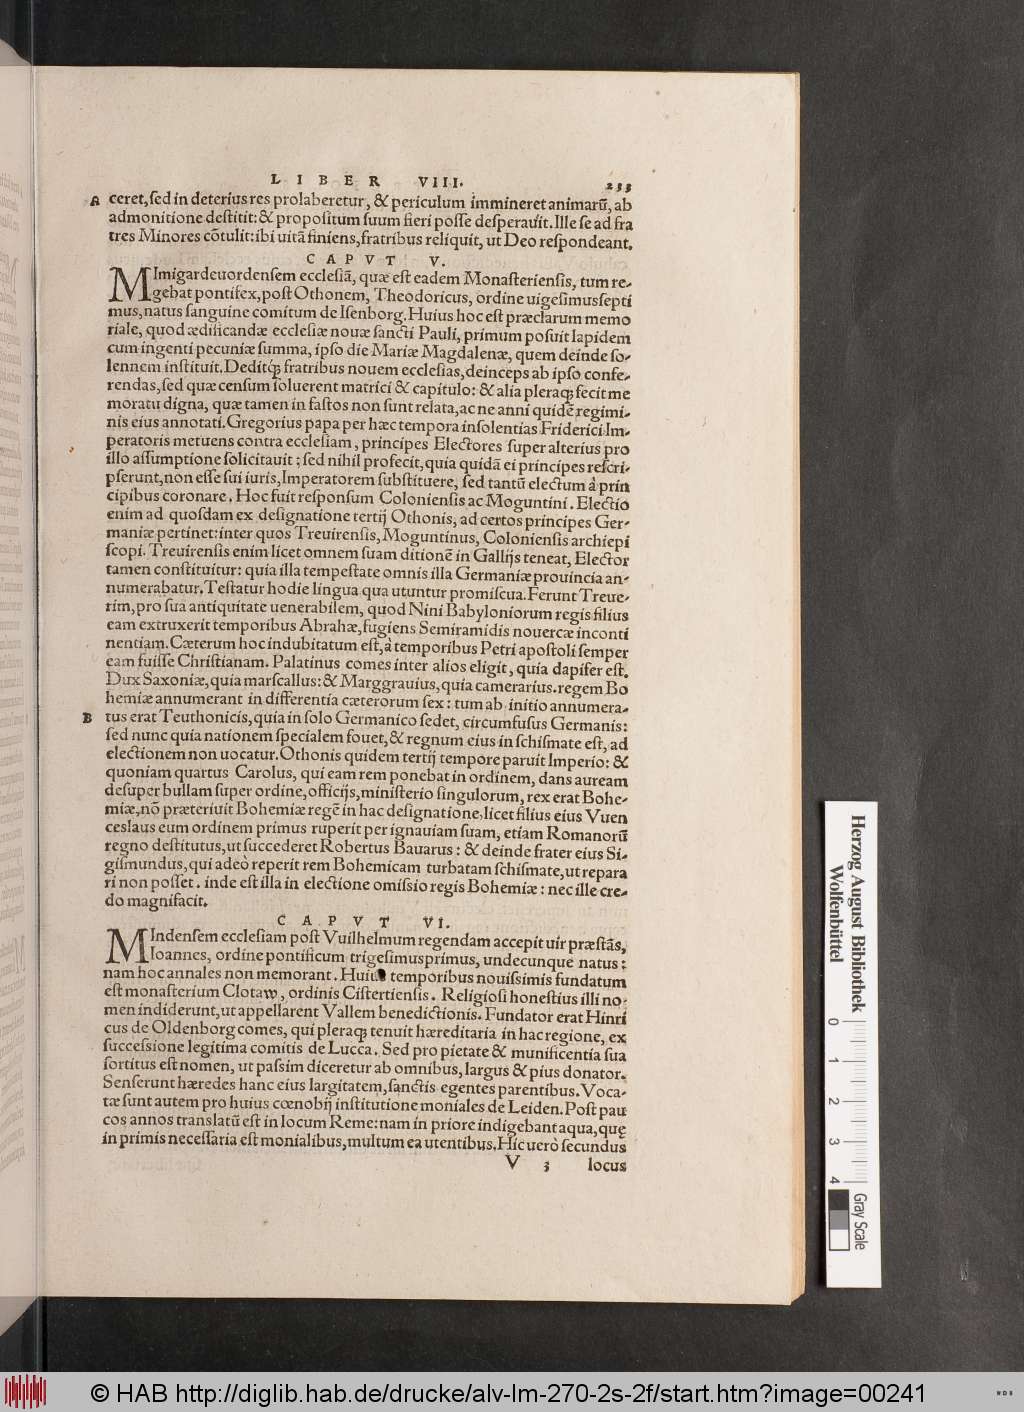 LIBER VIII. 233
A ceret, sed in deterius res prolaberetur, & periculum immineret animarū, ab
admonitione destitit: & propositum suum fieri posse desperauit. Ille se ad fra
tres Minores cōtulit: ibi uitā finiens, fratribus reliquit, ut Deo respondeant.
CAPVT V.
MImigardeuordensem ecclesiā, quæ est eadem Monasteriensis, tum re-
gebat pontifex, post Othonem, Theodoricus, ordine uigesimussepti
mus, natus sanguine comitum de Isenborg. Huius hoc est præclarum memo
riale, quod ædificandæ ecclesiæ nouæ sancti Pauli, primum posuit lapidem
cum ingenti pecuniæ summa, ipso die Mariæ Magdalenæ, quem deinde so-
lennem instituit. Deditq́; fratribus nouem ecclesias, deinceps ab ipso confe-
rendas, sed quæ censum soluerent matrici & capitulo: & alia pleraq; fecit me
moratu digna, quæ tamen in fastos non sunt relata, ac ne anni quidē regimi-
nis eius annotati. Gregorius papa per hæc tempora insolentias Friderici Im-
peratoris metuens contra ecclesiam, principes Electores super alterius pro
illo assumptione solicitauit: sed nihil profecit, quia quidā ei principes rescri-
pserunt, non esse sui iuris, Imperatorem substituere, sed tantū electum à prin
cipibus coronare. Hoc fuit responsum Coloniensis ac Moguntini. Electio
enim ad quosdam ex designatione tertij Othonis, ad certos principes Ger-
maniæ pertinet: inter quos Treuirensis, Moguntinus, Coloniensis archiepi
scopi. Treuirensis enim licet omnem suam ditionē in Gallijs teneat, Elector
tamen constituitur: quia illa tempestate omnis illa Germaniæ prouincia an-
numerabatur. Testatur hodie lingua qua utuntur promiscua. Ferunt Treue-
rim, pro sua antiquitate uenerabilem, quod Nini Babyloniorum regis filius
eam extruxerit temporibus Abrahæ, fugiens Semiramidis nouercæ inconti
nentiam. Cæterum hoc indubitatum est, à temporibus Petri apostoli semper
eam fuisse Christianam. Palatinus comes inter alios eligit, quia dapifer est.
Dux Saxoniæ, quia marscallus: & Marggrauius, quia camerarius. regem Bo
hemiæ annumerant in differentia cæterorum sex: tum ab initio annumera-
B tus erat Teuthonicis, quia in solo Germanico sedet, circumfusus Germanis:
sed nunc quia nationem specialem fouet, & regnum eius in schismate est, ad
electionem non uocatur. Othonis quidem tertij tempore paruit Imperio: &
quoniam quartus Carolus, qui eam rem ponebat in ordinem, dans auream
desuper bullam super ordine, officijs, ministerio singulorum, rex erat Bohe-
miæ, nō præteriuit Bohemiæ regē in hac designatione. licet filius eius Vuen
ceslaus eum ordinem primus ruperit per ignauiam suam, etiam Romanorū
regno destitutus, ut succederet Robertus Bauarus: & deinde frater eius Si-
gismundus, qui adeò reperit rem Bohemicam turbatam schismate, ut repara
ri non posset. inde est illa in electione omissio regis Bohemiæ: nec ille cre-
do magnifacit.
CAPVT VI.
MIndensem ecclesiam post Vuilhelmum regendam accepit uir præstās,
Ioannes, ordine pontificum trigesimusprimus, undecunque natus:
nam hoc annales non memorant. Huius temporibus nouissimis fundatum
est monasterium Clotaw, ordinis Cistertiensis. Religiosi honestius illi no-
men indiderunt, ut appellarent Vallem benedictionis. Fundator erat Hinri
cus de Oldenborg comes, qui pleraq; tenuit hæreditaria in hac regione, ex
successione legitima comitis de Lucca. Sed pro pietate & munificentia sua
sortitus est nomen, ut passim diceretur ab omnibus, largus & pius donator.
Senserunt hæredes hanc eius largitatem, sanctis egentes parentibus. Voca-
tæ sunt autem pro huius cœnobij institutione moniales de Leiden. Post pau
cos annos translatū est in locum Reme: nam in priore indigebant aqua, quę
in primis necessaria est monialibus, multum ea utentibus. Hic uerò secundus
V 3 locus
Herzog August Bibliothek
Wolfenbüttel
0 1 2 3 4
Gray Scale
© HAB http://diglib.hab.de/drucke/alv-lm-270-2s-2f/start.htm?image=00241
WDB